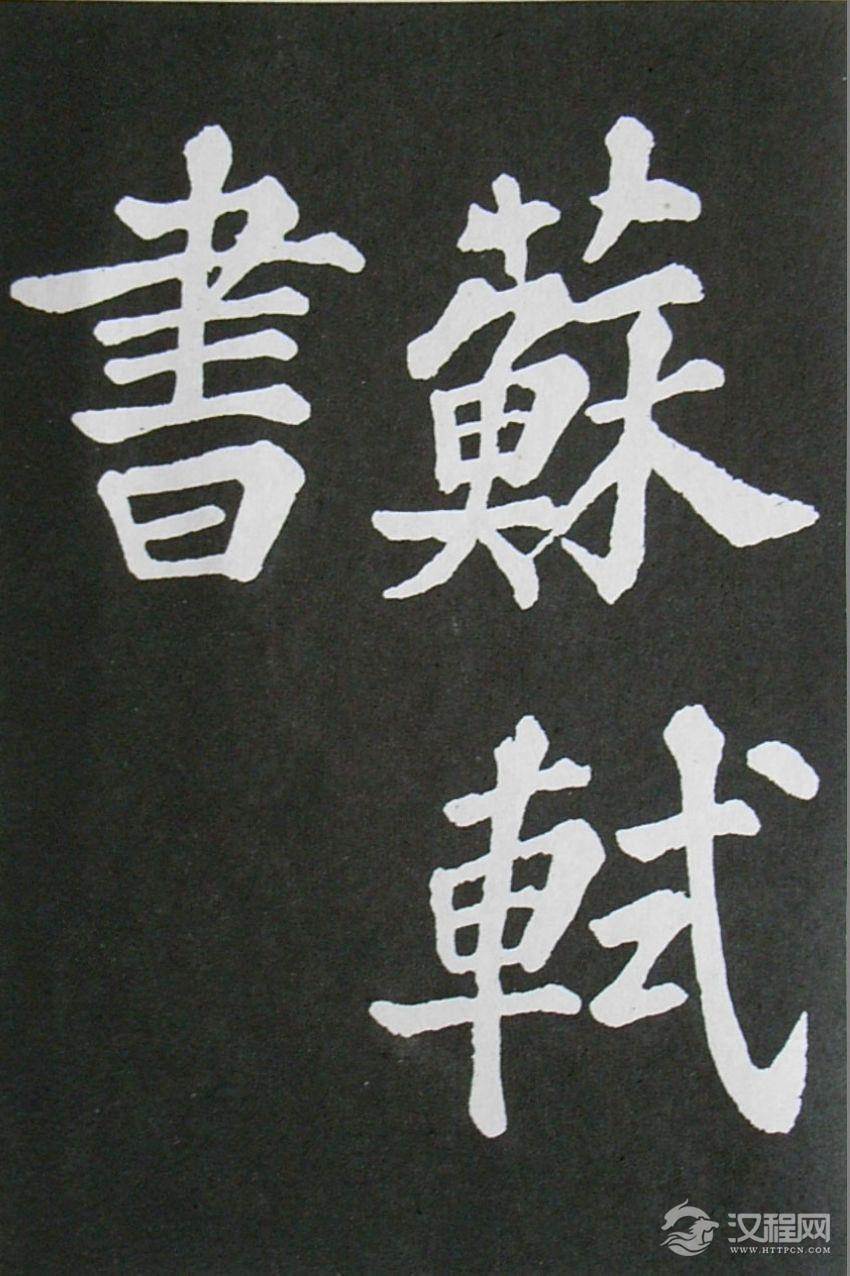 蘇軾
書
汉程网
WWW.HTTPCN.COM